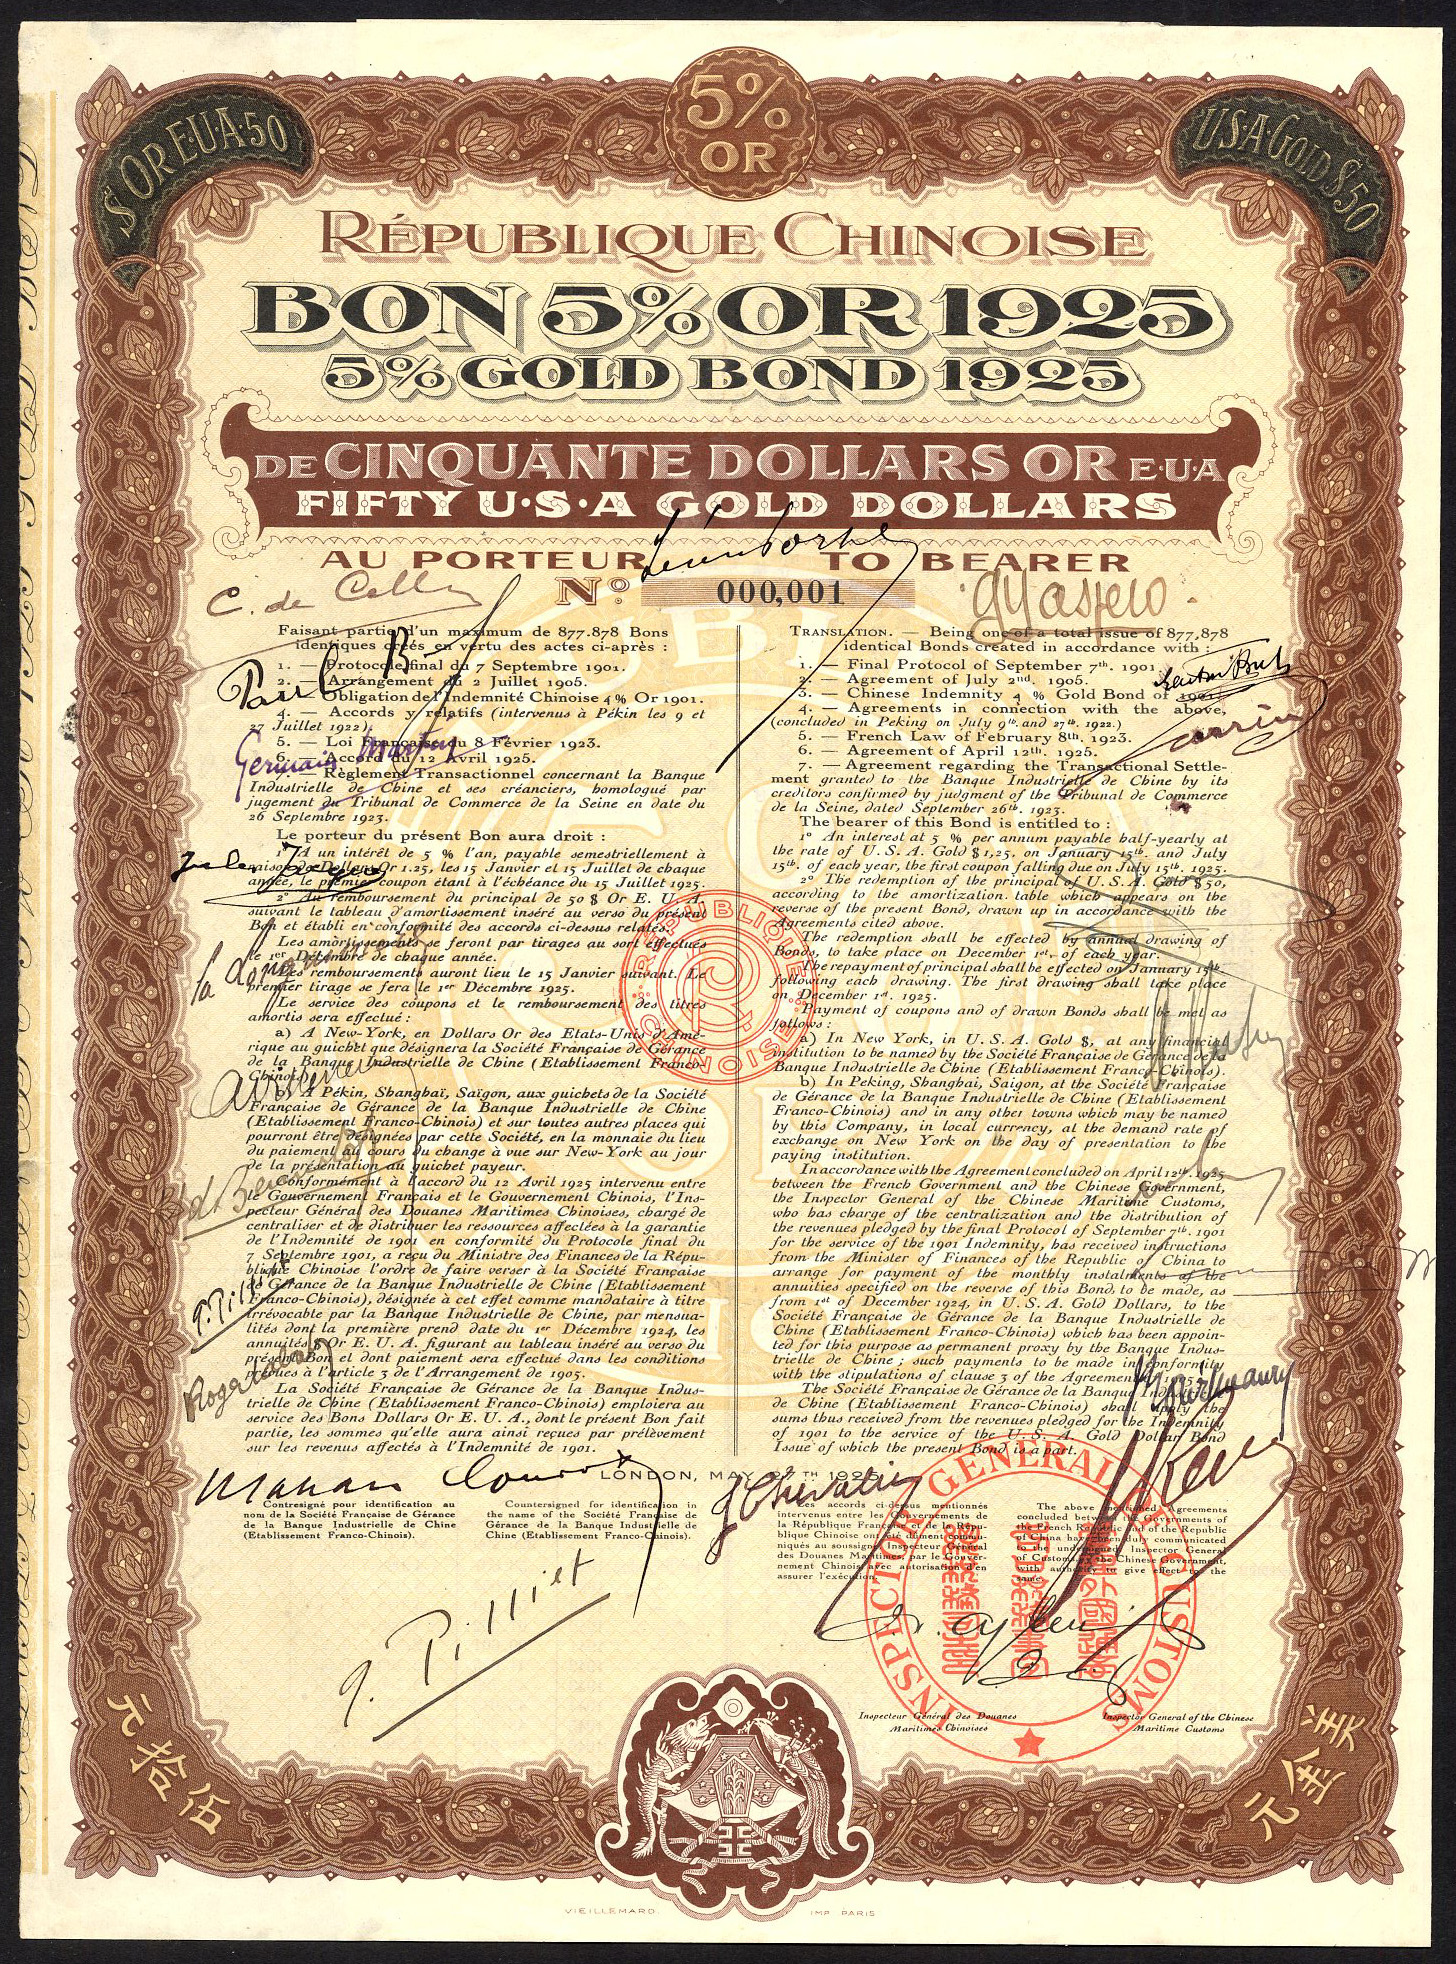 5%
OR
$ OR E·U·A·50
U·S·A·GOLD $ 50
RÉPUBLIQUE CHINOISE
BON 5% OR 1925
5% GOLD BOND 1925
DE CINQUANTE DOLLARS OR E·U·A
FIFTY U·S·A GOLD DOLLARS
AU PORTEUR
TO BEARER
No 000,001
C. de Cell
Faisant partie d'un maximum de 877.878 Bons
identiques créés en vertu des actes ci-après :
1. — Protocole final du 7 Septembre 1901.
2. — Arrangement du 2 Juillet 1905.
3. — Obligation de l'Indemnité Chinoise 4% Or 1901.
4. — Accords y relatifs (intervenus à Pékin les 9 et
27 Juillet 1922).
5. — Loi Française du 8 Février 1923.
6. — Accord du 12 Avril 1925.
7. — Règlement Transactionnel concernant la Banque
Industrielle de Chine et ses créanciers, homologué par
jugement du Tribunal de Commerce de la Seine en date du
26 Septembre 1923.
Le porteur du présent Bon aura droit :
1° A un intérêt de 5 % l'an, payable semestriellement à
raison de Dollars Or 1.25, les 15 Janvier et 15 Juillet de chaque
année, le premier coupon étant à l'échéance du 15 Juillet 1925.
2° Au remboursement du principal de 50 $ Or E. U. A.
suivant le tableau d'amortissement inséré au verso du présent
Bon et établi en conformité des accords ci-dessus relatés.
Les amortissements se feront par tirages au sort effectués
le 1er Décembre de chaque année.
Les remboursements auront lieu le 15 Janvier suivant. Le
premier tirage se fera le 1er Décembre 1925.
Le service des coupons et le remboursement des titres
amortis sera effectué :
a) A New-York, en Dollars Or des Etats-Unis d'Amé-
rique au guichet que désignera la Société Française de Gérance
de la Banque Industrielle de Chine (Etablissement Franco-
Chinois).
b) A Pékin, Shanghaï, Saïgon, aux guichets de la Société
Française de Gérance de la Banque Industrielle de Chine
(Etablissement Franco-Chinois) et sur toutes autres places qui
pourront être désignées par cette Société, en la monnaie du lieu
du paiement au cours du change à vue sur New-York au jour
de la présentation au guichet payeur.
Conformément à l'accord du 12 Avril 1925 intervenu entre
le Gouvernement Français et le Gouvernement Chinois, l'Ins-
pecteur Général des Douanes Maritimes Chinoises, chargé de
centraliser et de distribuer les ressources affectées à la garantie
de l'Indemnité de 1901 en conformité du Protocole final du
7 Septembre 1901, a reçu du Ministre des Finances de la Répu-
blique Chinoise l'ordre de faire verser à la Société Française
de Gérance de la Banque Industrielle de Chine (Etablissement
Franco-Chinois), désignée à cet effet comme mandataire à titre
irrévocable par la Banque Industrielle de Chine, par mensua-
lités dont la première prend date du 1er Décembre 1924, les
annuités $ Or E. U. A. figurant au tableau inséré au verso du
présent Bon et dont paiement sera effectué dans les conditions
prévues à l'article 3 de l'Arrangement de 1905.
La Société Française de Gérance de la Banque Indus-
trielle de Chine (Etablissement Franco-Chinois) emploiera au
service des Bons Dollars Or E. U. A., dont le présent Bon fait
partie, les sommes qu'elle aura ainsi reçues par prélèvement
sur les revenus affectés à l'Indemnité de 1901.
TRANSLATION. — Being one of a total issue of 877,878
identical Bonds created in accordance with :
1. — Final Protocol of September 7th. 1901.
2. — Agreement of July 2nd. 1905.
3. — Chinese Indemnity 4 % Gold Bond of 1901.
4. — Agreements in connection with the above,
(concluded in Peking on July 9th. and 27th. 1922.)
5. — French Law of February 8th. 1923.
6. — Agreement of April 12th. 1925.
7. — Agreement regarding the Transactional Settle-
ment granted to the Banque Industrielle de Chine by its
creditors confirmed by judgment of the Tribunal de Commerce
de la Seine, dated September 26th. 1923.
The bearer of this Bond is entitled to :
1° An interest at 5 % per annum payable half-yearly at
the rate of U. S. A. Gold $ 1,25. on January 15th. and July
15th. of each year, the first coupon falling due on July 15th. 1925.
2° The redemption of the principal of U. S. A. Gold $ 50,
according to the amortization table which appears on the
reverse of the present Bond, drawn up in accordance with the
Agreements cited above.
The redemption shall be effected by annual drawing of
Bonds, to take place on December 1st. of each year.
The repayment of principal shall be effected on January 15th.
following each drawing. The first drawing shall take place
on December 1st. 1925.
Payment of coupons and of drawn Bonds shall be met as
follows :
a) In New York, in U. S. A. Gold $, at any financial
institution to be named by the Société Française de Gérance de la
Banque Industrielle de Chine (Etablissement Franco-Chinois).
b) In Peking, Shanghai, Saigon, at the Société Française
de Gérance de la Banque Industrielle de Chine (Etablissement
Franco-Chinois) and in any other towns which may be named
by this Company, in local currency, at the demand rate of
exchange on New York on the day of presentation to the
paying institution.
In accordance with the Agreement concluded on April 12th. 1925
between the French Government and the Chinese Government,
the Inspector General of the Chinese Maritime Customs,
who has charge of the centralization and the distribution of
the revenues pledged by the final Protocol of September 7th. 1901
for the service of the 1901 Indemnity, has received instructions
from the Minister of Finances of the Republic of China to
arrange for payment of the monthly instalments of the
annuities specified on the reverse of this Bond, to be made, as
from 1st of December 1924, in U. S. A. Gold Dollars, to the
Société Française de Gérance de la Banque Industrielle de
Chine (Etablissement Franco-Chinois) which has been appoin-
ted for this purpose as permanent proxy by the Banque Indus-
trielle de Chine ; such payments to be made in conformity
with the stipulations of clause 3 of the Agreement of 1905.
The Société Française de Gérance de la Banque Industrielle
de Chine (Etablissement Franco-Chinois) shall apply the
sums thus received from the revenues pledged for the Indemnity
of 1901 to the service of the U. S. A. Gold Dollar Bond
Issue of which the present Bond is a part.
Germain Martin
Roger
RÉPUBLIQUE
LONDON, MAY 27TH 1925
G Chevalier
Contresigné pour identification au
nom de la Société Française de Gérance
de la Banque Industrielle de Chine
(Etablissement Franco-Chinois).
Countersigned for identification in
the name of the Société Française de
Gérance de la Banque Industrielle de
Chine (Etablissement Franco-Chinois).
Les accords ci-dessus mentionnés
intervenus entre les Gouvernements de
la République Française et de la Répu-
blique Chinoise ont été dûment commu-
niqués au soussigné Inspecteur Général
des Douanes Maritimes par le Gouver-
nement Chinois avec autorisation d'en
assurer l'exécution.
The above mentioned Agreements
concluded between the Governments of
the French Republic and of the Republic
of China have been duly communicated
to the undersigned, Inspector General
of Customs by the Chinese Government,
with authority to give effect to the
same.
INSPECTOR GENERAL OF CUSTOMS
G. Pilliet
Inspecteur Général des Douanes
Maritimes Chinoises
Inspector General of the Chinese
Maritime Customs
伍拾元
美金元
VIEILLEMARD
IMP. PARIS